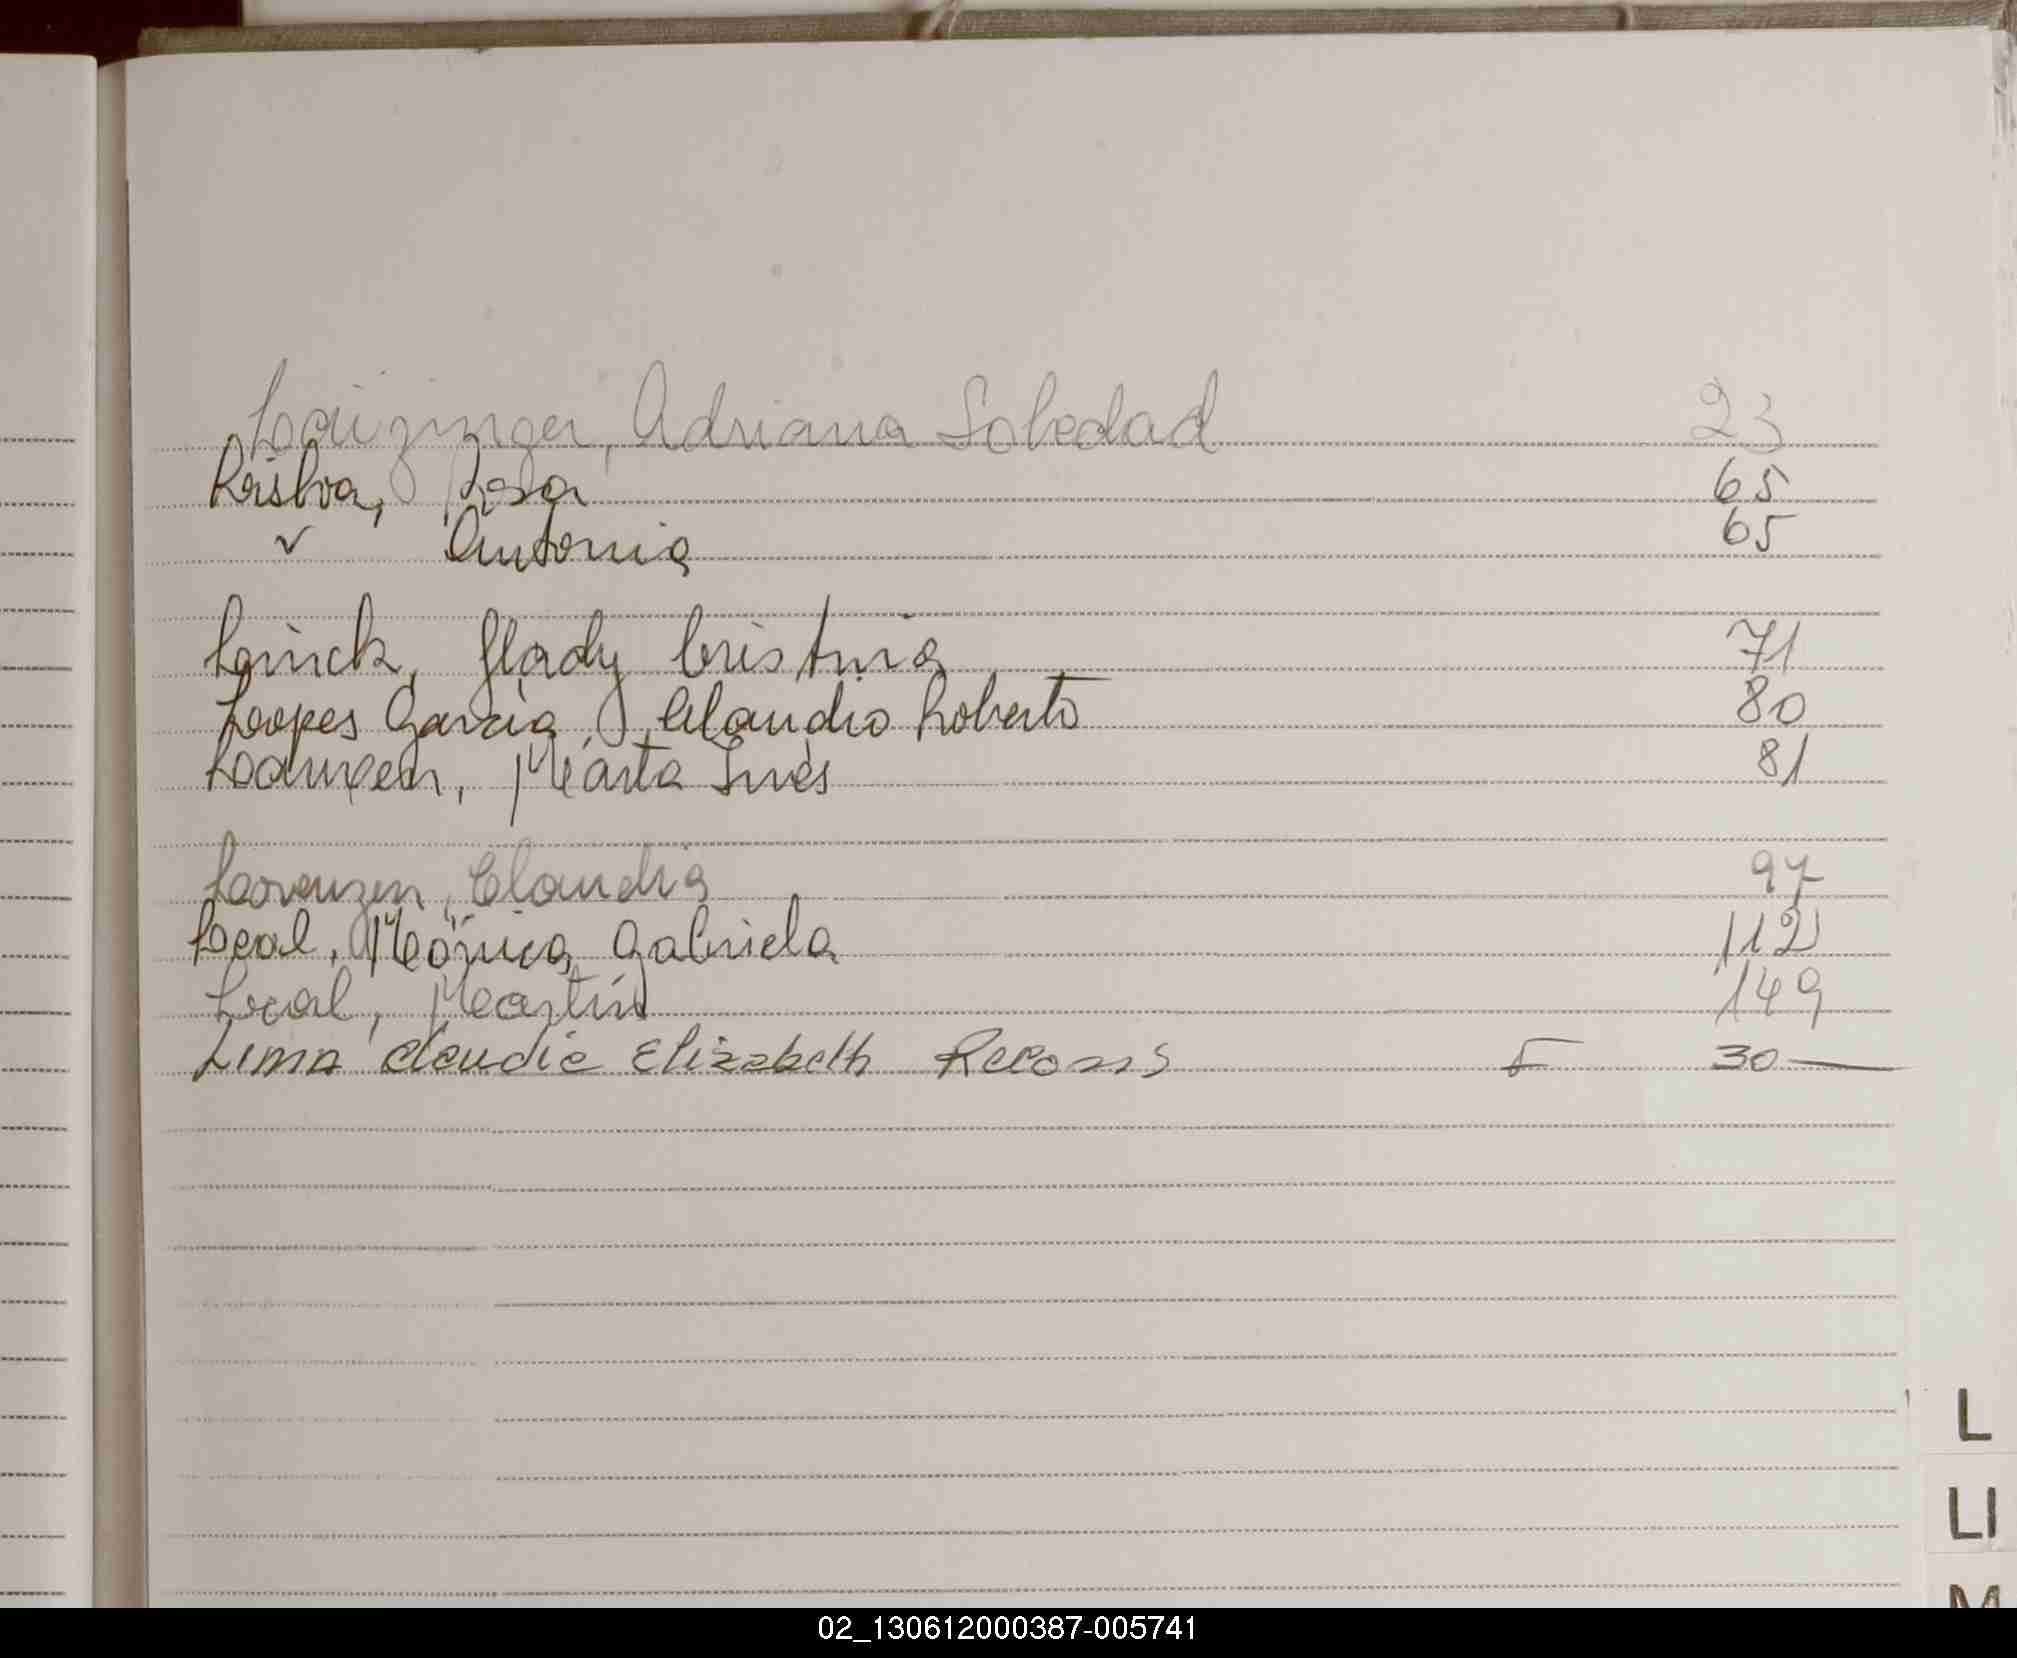 Adriana Soledad 23
Rosa 65
✓ Antonia 65
Leinck, Glady Cristina 71
Loopes Garcia, Claudio Roberto 80
Marta Inés 81
Lorenzen, Claudia 97
Leal, Mónica Gabriela 112
Leal, Martín 149
Lima Claudia Elizabeth F 30
L
LI
M
02_130612000387-005741